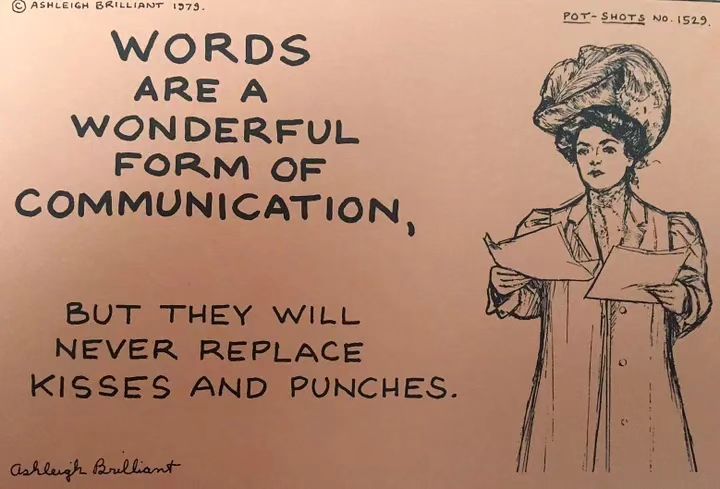 © ASHLEIGH BRILLIANT 1979.
POT-SHOTS NO. 1529.
WORDS
ARE A
WONDERFUL
FORM OF
COMMUNICATION,
BUT THEY WILL
NEVER REPLACE
KISSES AND PUNCHES.
Ashleigh Brilliant